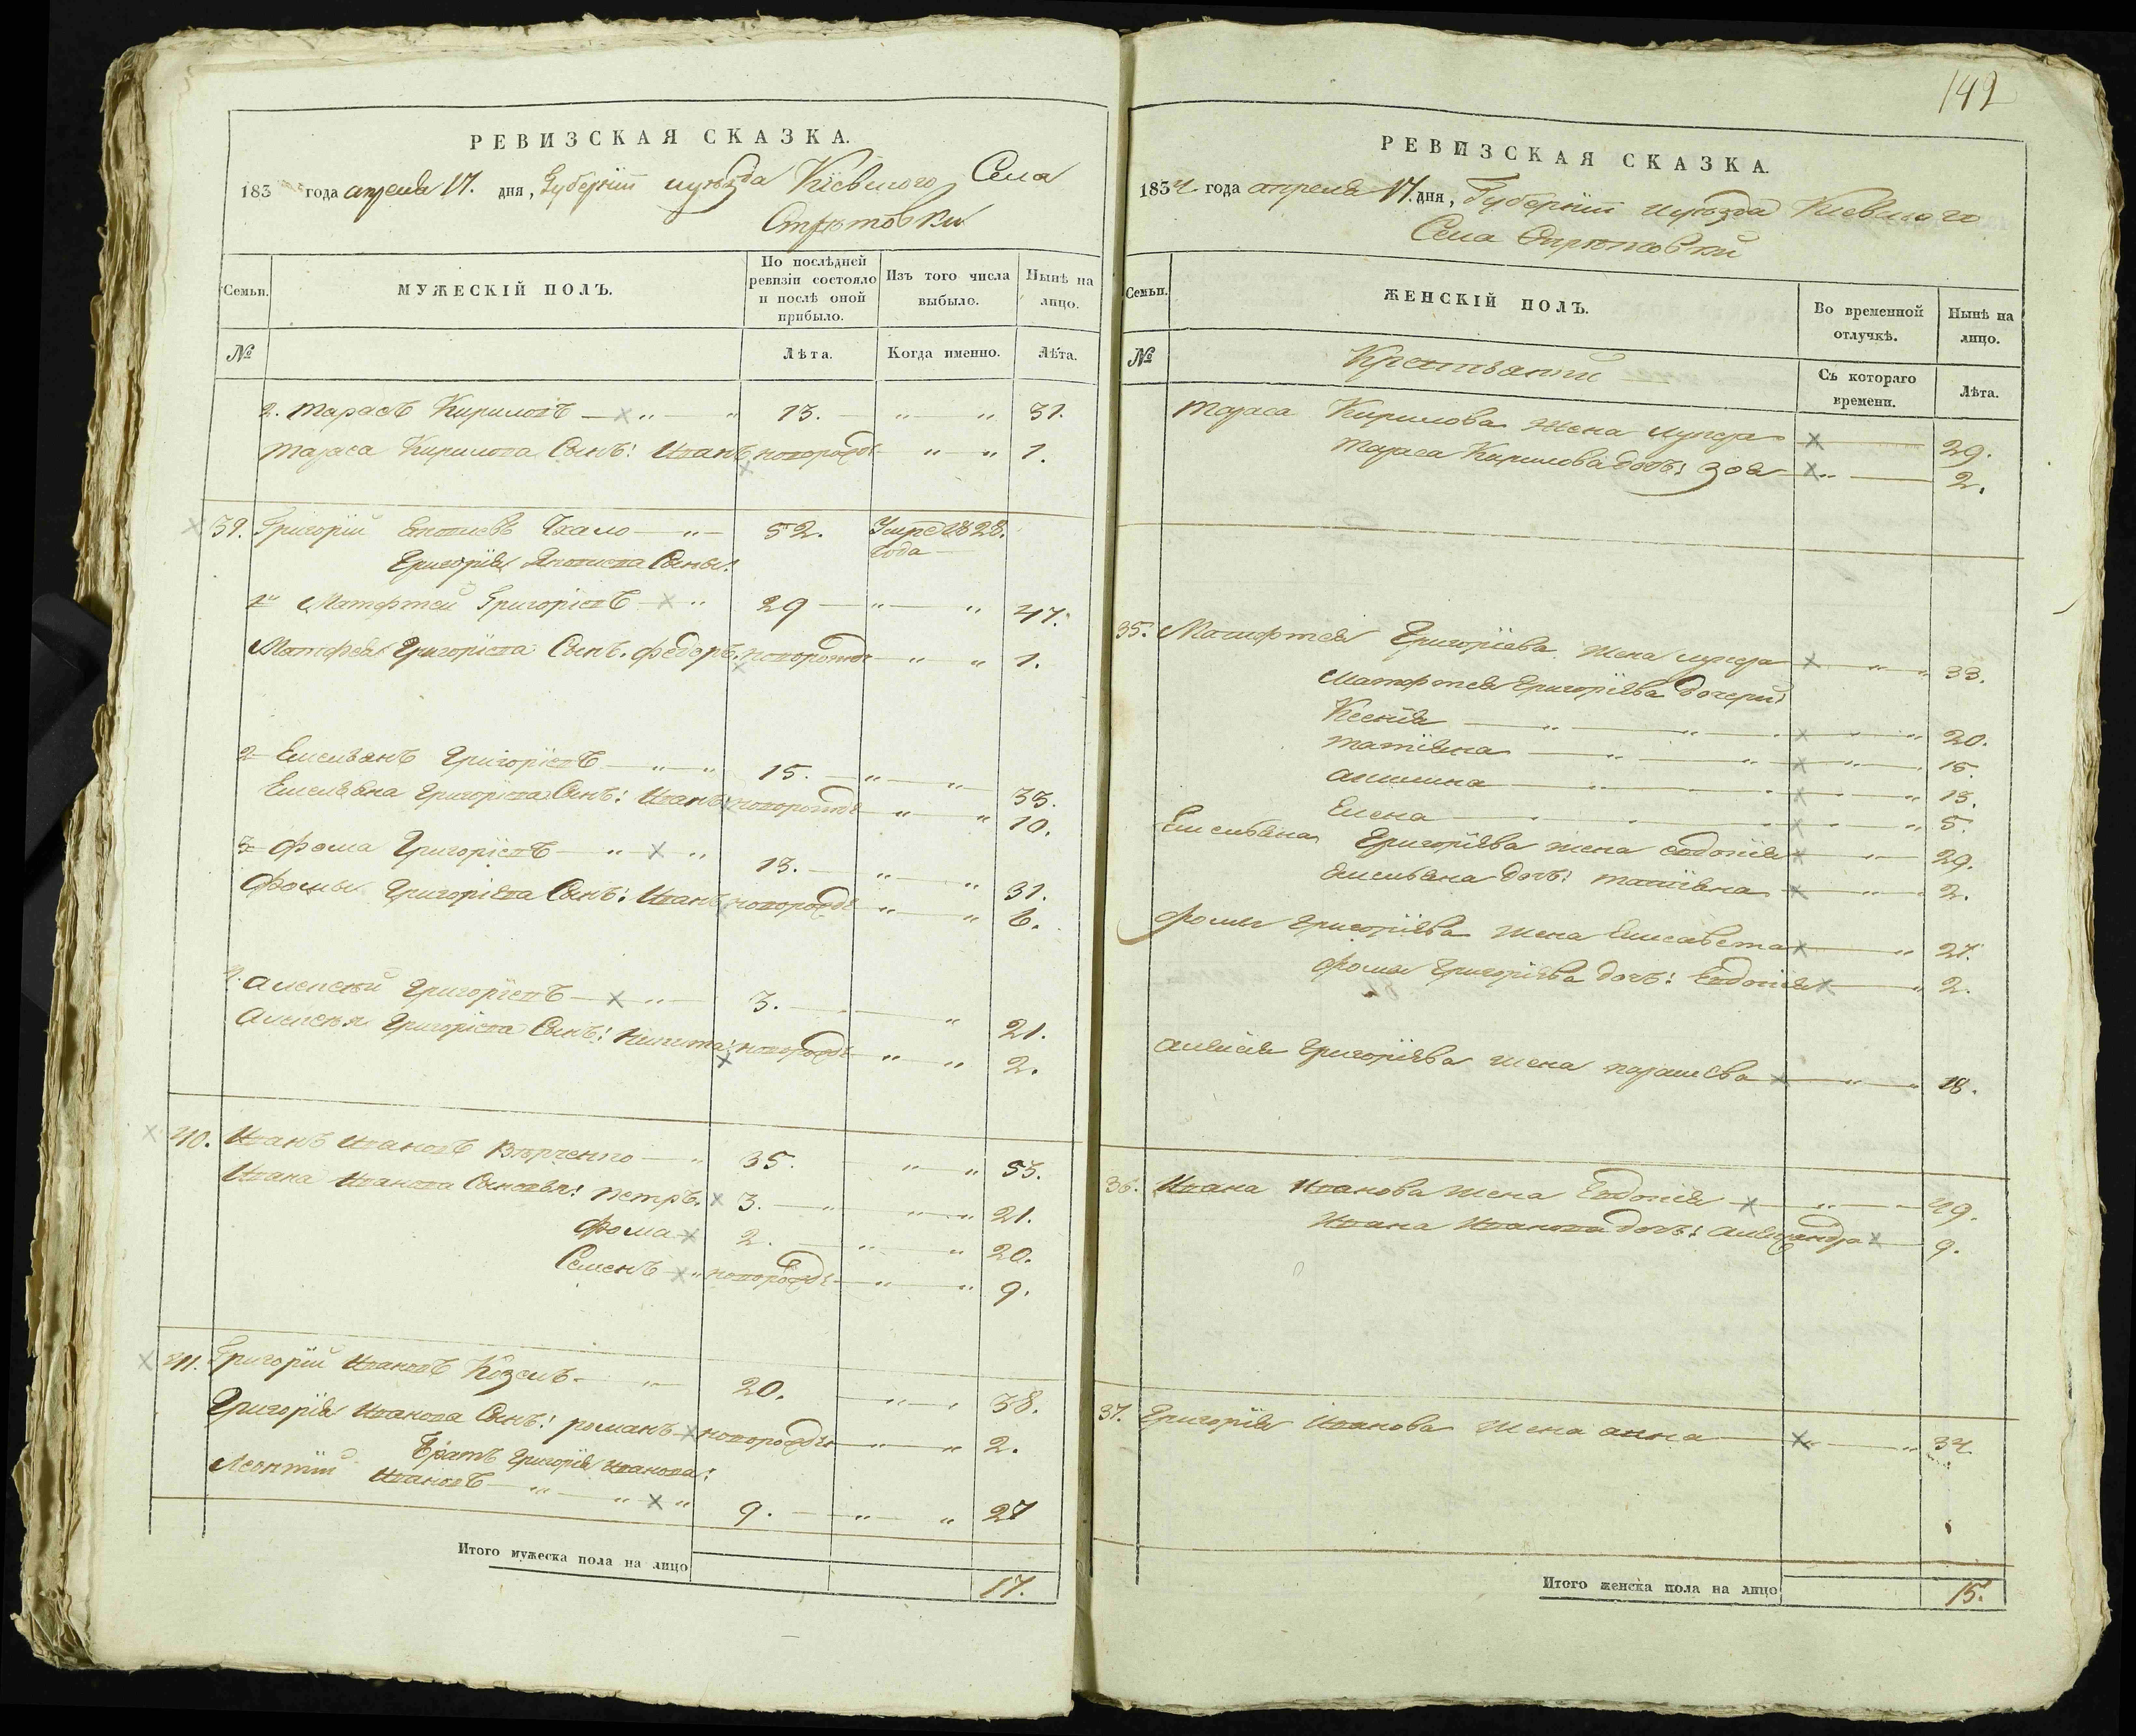 149
РЕВИЗСКАЯ СКАЗКА.
183 года апреля 17. дня, Губерніи и уѣзда Кіевского Села
Стрѣтовки
Семьи.
МУЖЕСКІЙ ПОЛЪ.
По послѣдней ревизіи состояло и послѣ оной прибыло.
Изъ того числа выбыло.
Нынѣ на лицо.
№
Лѣта.
Когда именно.
Лѣта.
2. Тарасъ Кириловъ 13. 31.
Тараса Кирилова Сынъ: Иванъ новорожд: 1.
39. Григорій Ухало 52. Умре 1828. года
Григорія Сыны:
1й Матфтей Григоріевъ 29 47.
Матфея Григоріева Сынъ. Федоръ. новорожд: 1.
2 Емельянъ Григоріевъ 15. 33.
Емельяна Григоріева Сынъ: Иванъ новорожд: 10.
3 Фома Григоріевъ 13. 31.
Фомы Григоріева Сынъ: Иванъ новорожд: 6.
4. Алексѣй Григоріевъ 3. 21.
Алексѣя Григоріева Сынъ: Никита: новорожд: 2.
40. Иванъ Ивановъ Вѣрченко 35. 53.
Ивана Иванова Сыновья: Петръ. 3. 21.
Фома 2. 20.
Семенъ новорожд: 9.
41. Григорій Ивановъ Козелъ. 20. 38.
Григорія Иванова Сынъ: Романъ новорожд: 2.
Братъ Григорія Иванова:
Леонтій Ивановъ 9. 27
Итого мужеска пола на лицо 17.
РЕВИЗСКАЯ СКАЗКА.
1834 года апреля 17. дня, Губерніи и уѣзда Киевского
Села Стрѣтовки
Семьи.
ЖЕНСКІЙ ПОЛЪ.
Во временной отлучкѣ.
Нынѣ на лицо.
№
Крестьяніи
Съ котораго времени.
Лѣта.
Тараса Кирилова Жена 29.
Тараса Кирилова дочь: Зоя 2.
35. Матфтея Григоріева Жена 33.
Матфтея Григоріева дочери:
Ксенія 20.
Татіяна 15.
Акилина 13.
Елена 5.
Емельяна Григоріева жена Евдокія 29.
Емельяна дочь: Татіяна 2.
Фомы Григоріева Жена Елисавета 27.
Фомы Григоріева дочь: Евдокія 2.
Алексія Григоріева жена 18.
36. Ивана Иванова Жена Евдокія 49.
Ивана Иванова дочь: Александра 9.
37. Григорія Иванова Жена анна 34.
Итого женска пола на лицо 15.